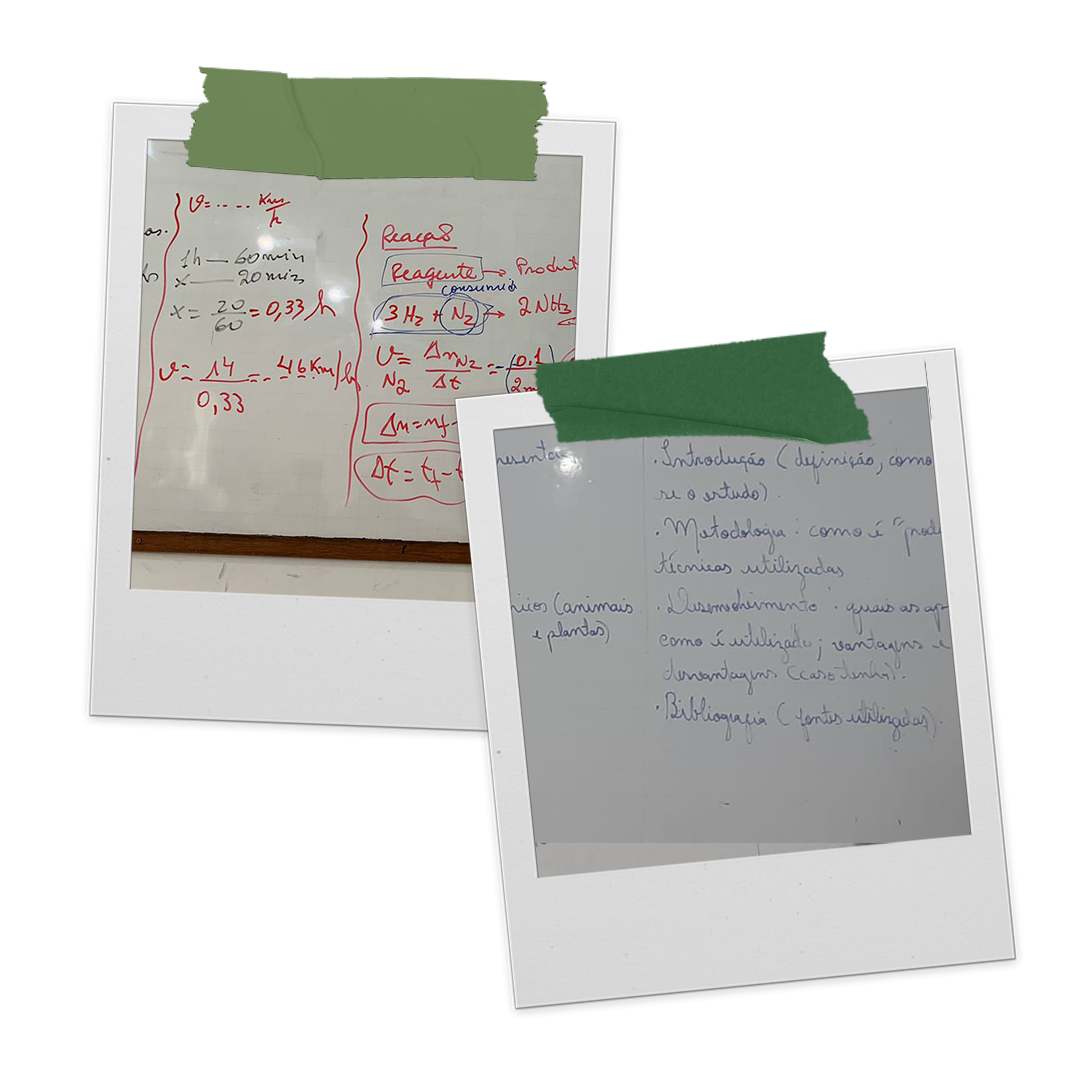 v = .. .. Km/h
os.
1h — 60 min
x — 20 min
x = 20/60 = 0,33 h
v = 14/0,33 = 46 Km/h
Reação
Reagente → Produt
consumid
3 H₂ + N₂ → 2 NH₃
v N₂ = Δn N₂/Δt = - (0.1/2m
Δn = nf -
Δt = tf - t
resentar
nicos (animais
e plantas)
· Introdução (definição, como
se o estudo).
· Metodologia: como é "prod
técnicas utilizadas
· Desenvolvimento: quais as ap-
como é utilizado; vantagens e
desvantagens (caso tenha).
· Bibliografia (fontes utilizadas).